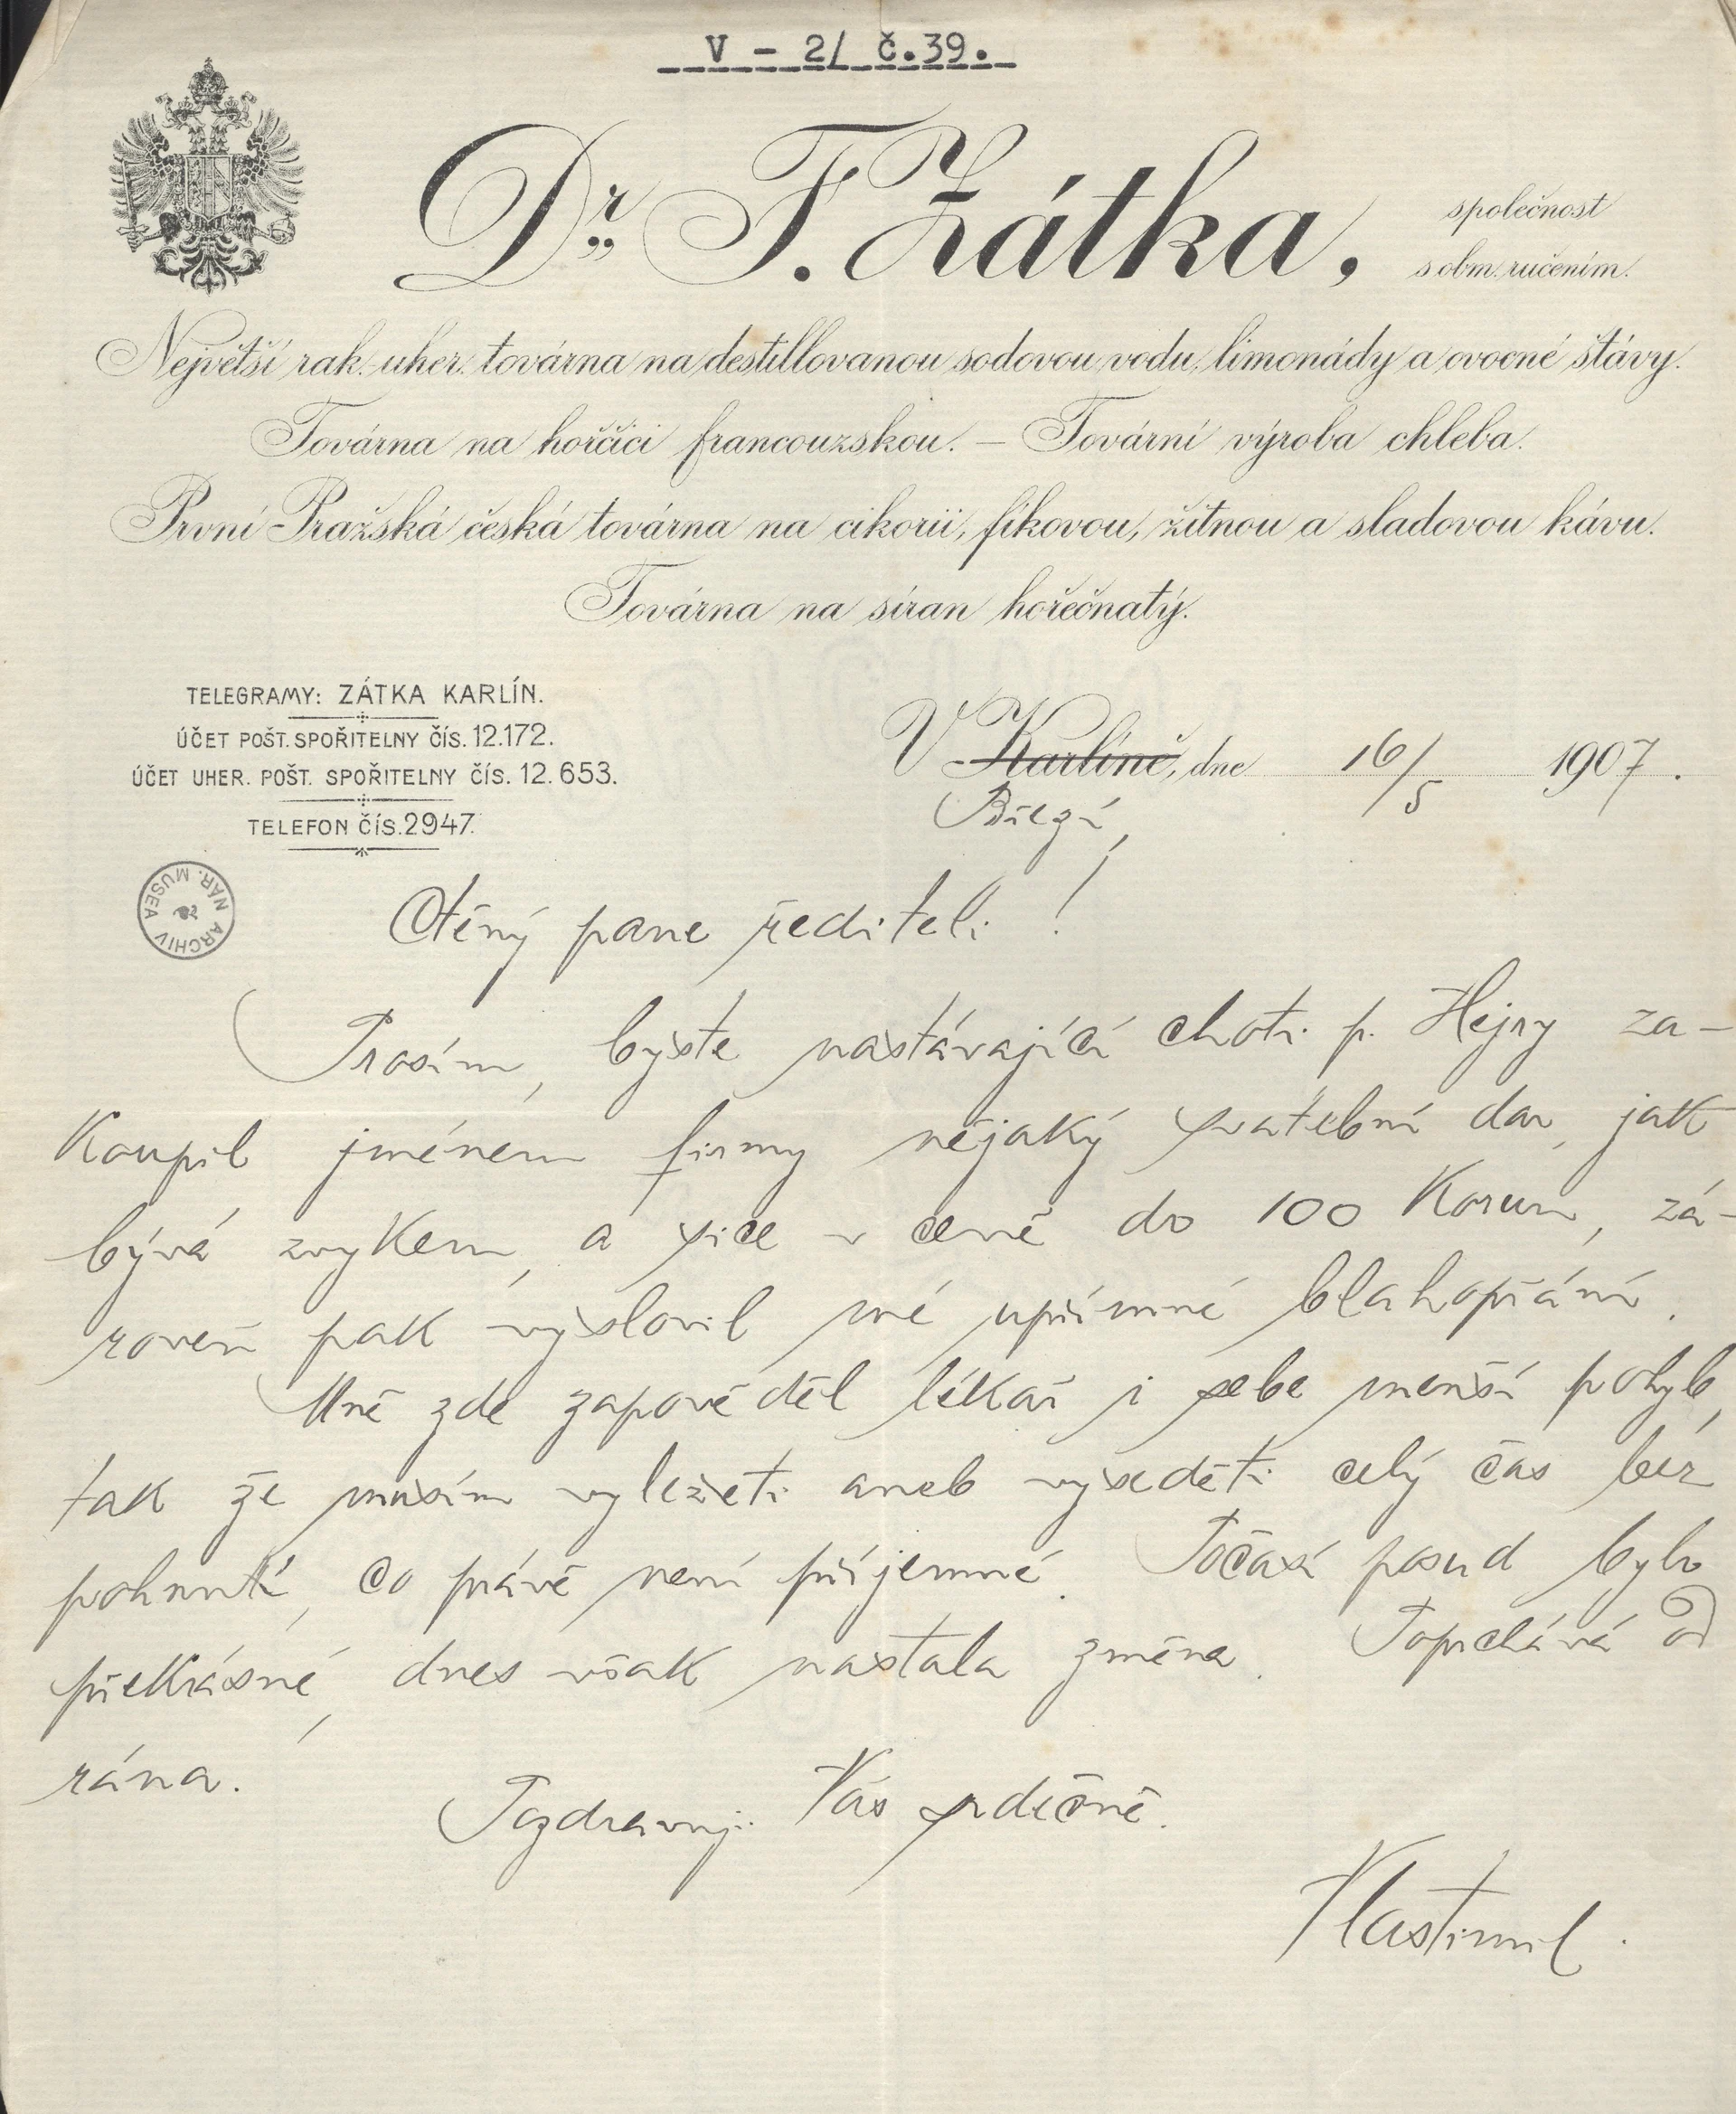 V - 2/ č.39.
Dr. F. Zátka,
společnost
s obm. ručením.
Největší rak. uher. továrna na destillovanou sodovou vodu, limonády a ovocné štávy.
Továrna na hořčici francouzskou. — Tovární výroba chleba.
První Pražská česká továrna na cikorii, fíkovou, žitnou a sladovou kávu.
Továrna na síran hořečnatý.
TELEGRAMY: ZÁTKA KARLÍN.
ÚČET POŠT. SPOŘITELNY ČÍS. 12.172.
ÚČET UHER. POŠT. SPOŘITELNY ČÍS. 12.653.
TELEFON ČÍS. 2947.
V Karlíně, dne 16/5 1907.
Březí,
ARCHIV NÁR. MUSEA
Ctěný pane řediteli!
Prosím, byste nastávající choti p. Hejny za-
koupil jménem firmy nějaký svatební dar, jak
bývá zvykem, a sice v ceně do 100 korun, zá-
roveň pak vyslovil mé upřímné blahopřání.
Mně zde zapověděl lékař i sebe menší pohyb,
tak že musím vyležeti aneb vyseděti celý čas bez
pohnutí, co právě není příjemné. Počasí posud bylo
překrásné, dnes však nastala změna. Poprchává od
rána.
Pozdravuji Vás srdečně.
Vlastimil.